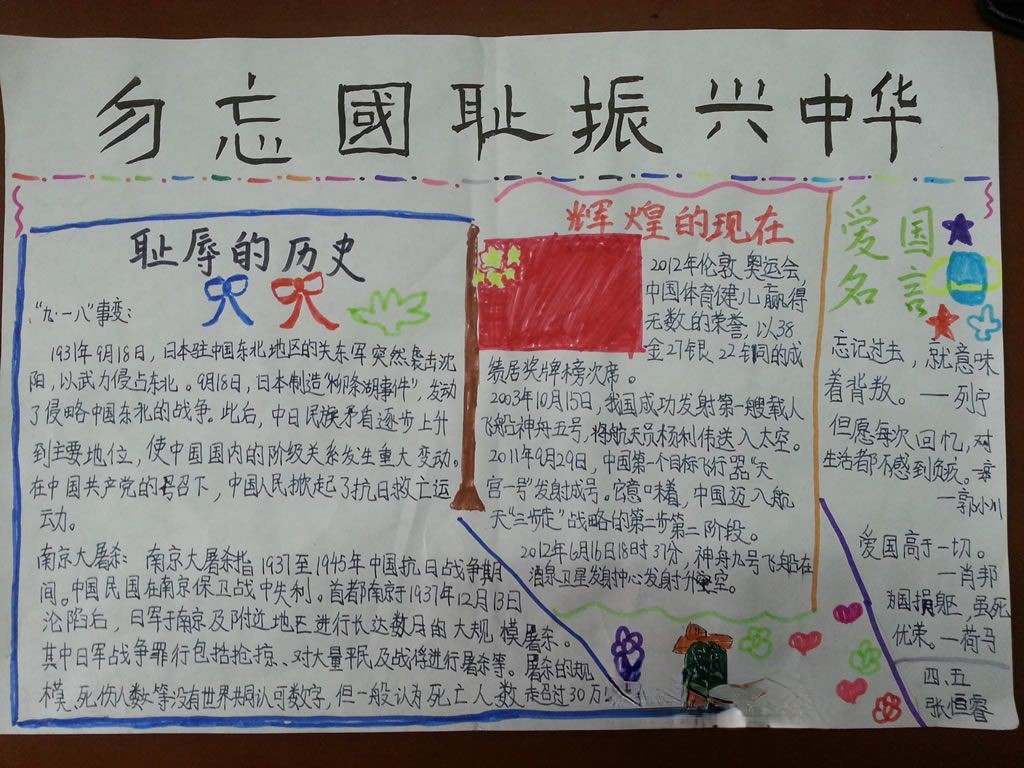 勿忘國耻振兴中华
耻辱的历史
“九·一八”事变:
1931年9月18日,日本驻中国东北地区的关东军突然袭击沈
阳,以武力侵占东北。9月18日,日本制造“柳条湖事件”,发动
了侵略中国东北的战争。此后,中日民族矛盾逐步上升
到主要地位,使中国国内的阶级关系发生重大变动。
在中国共产党的号召下,中国人民掀起了抗日救亡运
动。
南京大屠杀:南京大屠杀指1937至1945年中国抗日战争期
间。中国民国在南京保卫战中失利。首都南京于1937年12月13日
沦陷后,日军于南京及附近地区进行长达数月的大规模屠杀。
其中日军战争罪行包括抢掠、对大量平民及战俘进行屠杀等。屠杀的规
模、死伤人数等没有世界共同认可数字,但一般认为死亡人数超过30万!
辉煌的现在
2012年伦敦奥运会,
中国体育健儿赢得
无数的荣誉,以38
金27银22铜的成
绩居奖牌榜次席。
2003年10月15日,我国成功发射第一艘载人
飞船神舟五号,将航天员杨利伟送入太空。
2011年9月29日,中国第一个目标飞行器“天
宫一号”发射成号。它意味着,中国迈入航
天“三步走”战略的第二步第二阶段。
2012年6月16日18时37分,神舟九号飞船在
酒泉卫星发射中心发射升空。
爱国
名言
忘记过去,就意味
着背叛。——列宁
但愿每次回忆,对
生活都不感到负疚。
——郭小川
爱国高于一切。
——肖邦
为国捐躯,虽死
优荣。——荷马
四、五
张恒睿